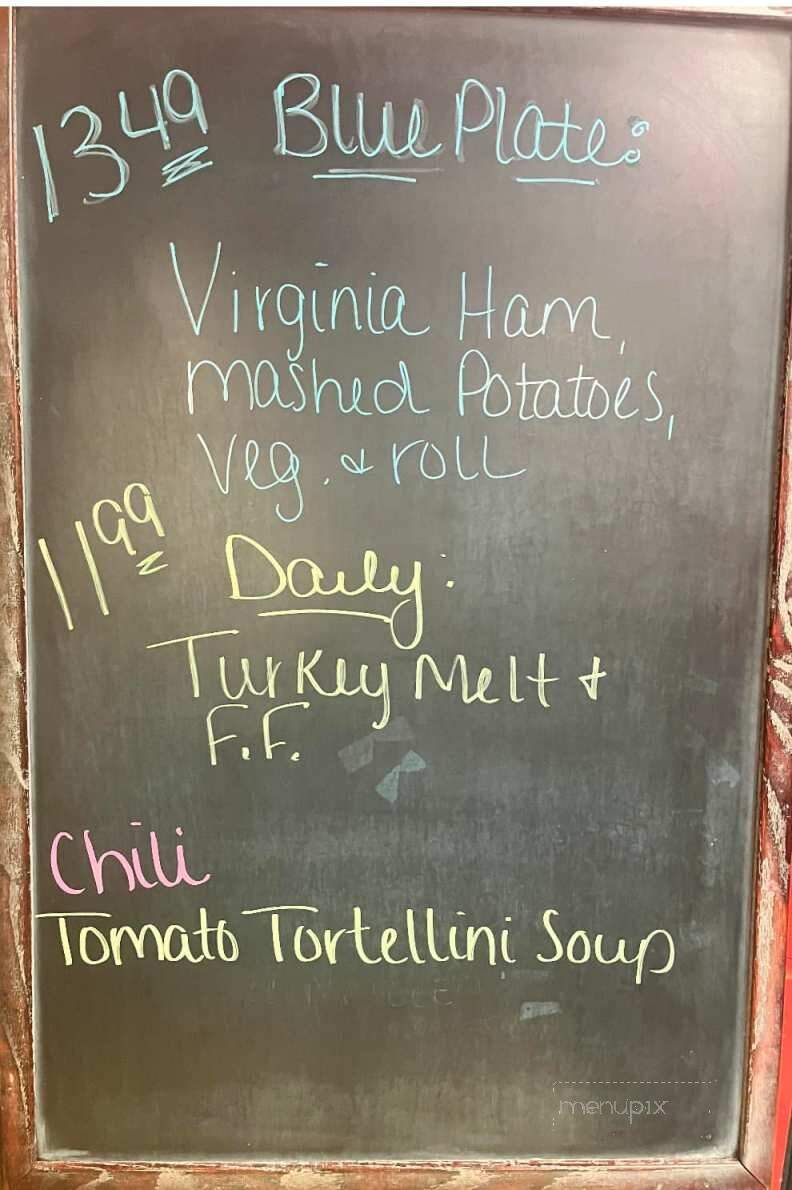 13 49 Blue Plate:
Virginia Ham,
mashed Potatoes,
Veg. & roll
11 99 Daily:
Turkey Melt &
F.F.
Chili
Tomato Tortellini Soup
menupix